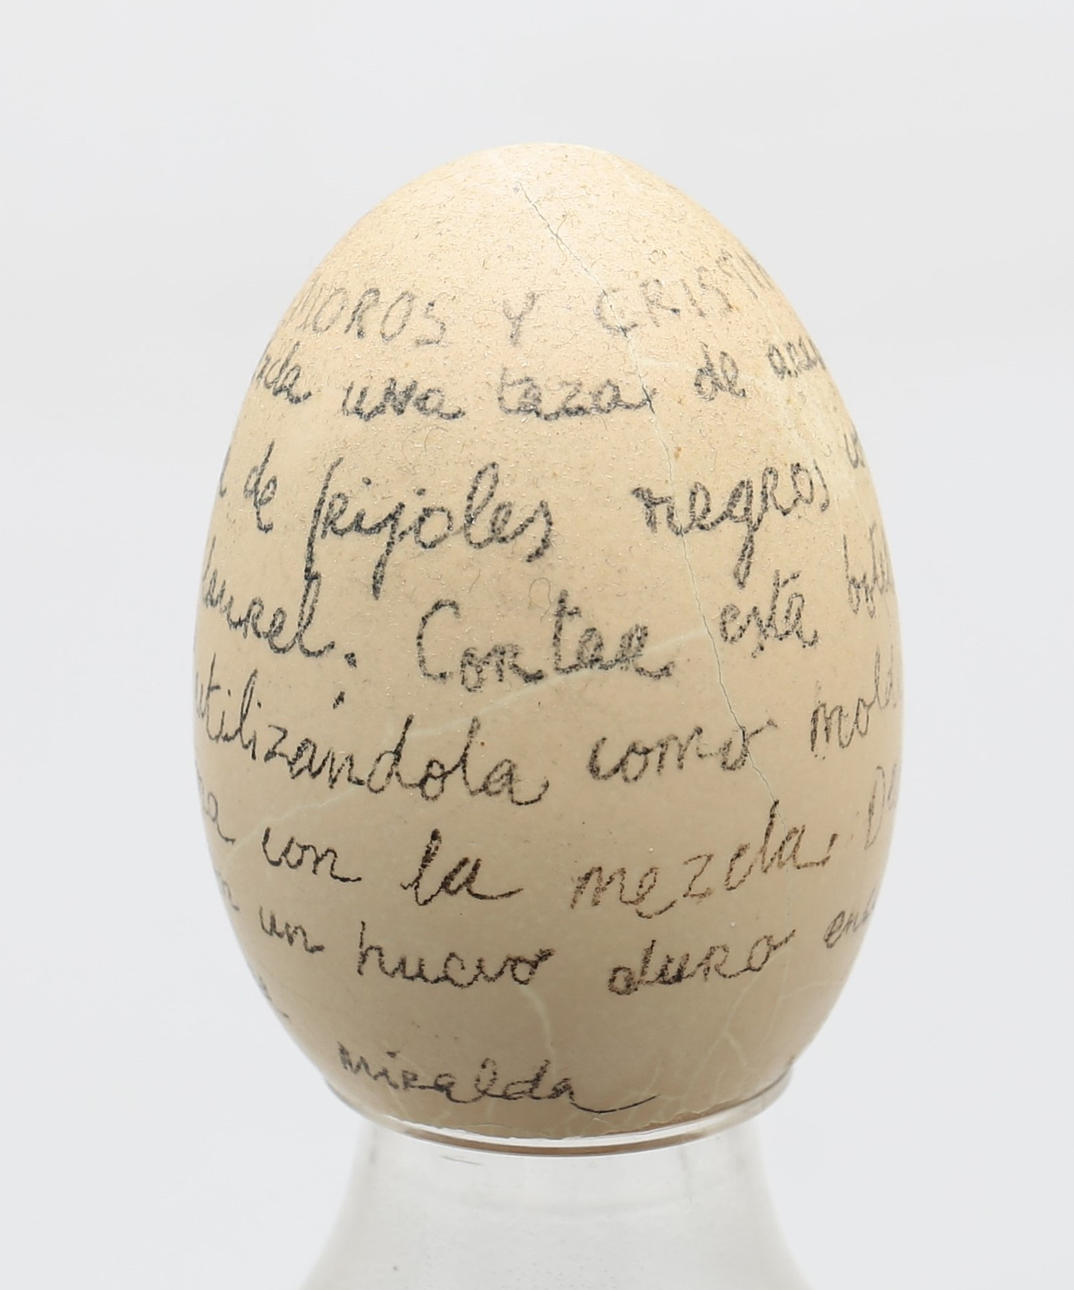 MOROS Y CRIST
ada una taza de arr
de frijoles negros co
laurel. Cortar esta bote
utilizándola como mold
na con la mezcla. De
un huevo duro en
miralda